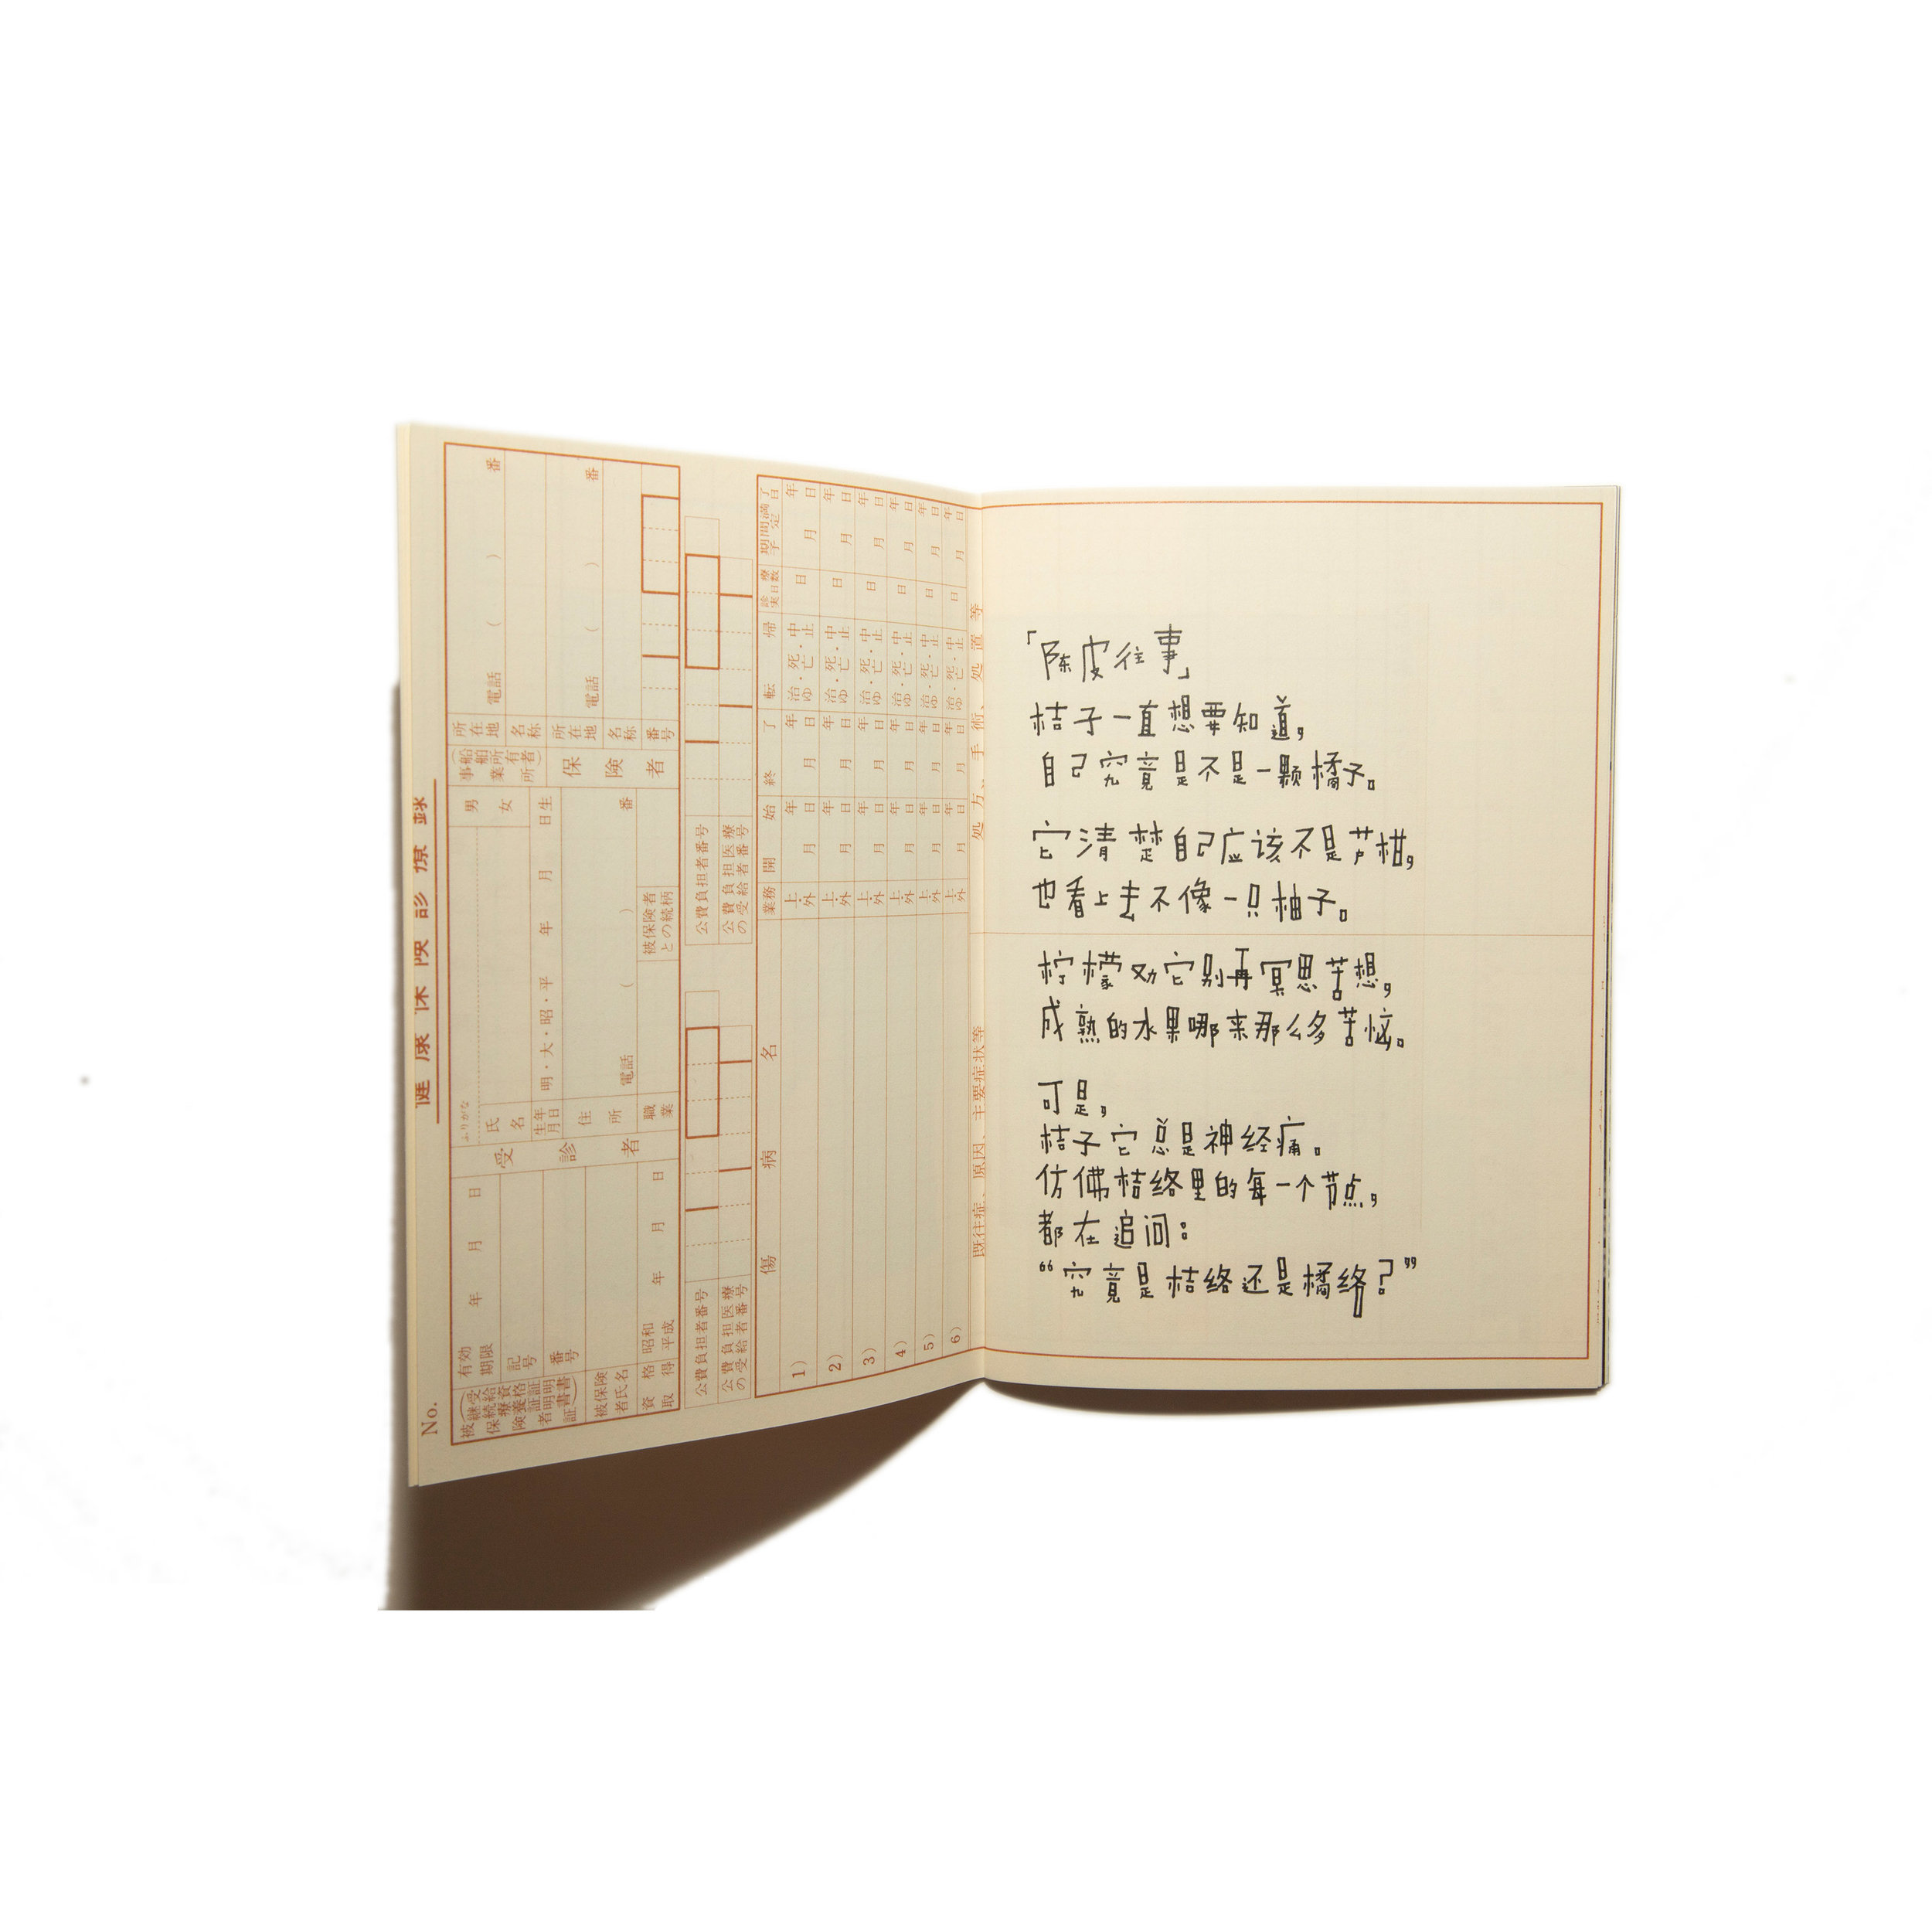 健康保険診療録
No.
被保険者証
(継続療養受給資格証明書)
有効期限
年 月 日
記号
番号
被保険者氏名
資格取得
昭和 平成 年 月 日
受診者
ふりがな
氏名
男 女
生年月日
明・大・昭・平 年 月 日生
住所
電話 ( ) 番
職業
被保険者との続柄
事業所
(船舶所有者)
所在地
電話 ( ) 番
名称
保険者
所在地
電話 ( ) 番
名称
番号
公費負担者番号
公費負担者番号
公費負担医療の受給者番号
公費負担医療の受給者番号
傷病名 業務 開始 終了 転帰 診療実日数 期間満了予定日
1) 上・外 年 月 日 年 月 日 治ゆ・死亡・中止 日 年 月 日
2) 上・外 年 月 日 年 月 日 治ゆ・死亡・中止 日 年 月 日
3) 上・外 年 月 日 年 月 日 治ゆ・死亡・中止 日 年 月 日
4) 上・外 年 月 日 年 月 日 治ゆ・死亡・中止 日 年 月 日
5) 上・外 年 月 日 年 月 日 治ゆ・死亡・中止 日 年 月 日
6) 上・外 年 月 日 年 月 日 治ゆ・死亡・中止 日 年 月 日
既往症、原因、主要症状等
処方、手術、処置等
「陈皮往事」
桔子一直想要知道，
自己究竟是不是一颗橘子。
它清楚自己应该不是芦柑，
也看上去不像一只柚子。
柠檬劝它别再冥思苦想，
成熟的水果哪来那么多苦恼。
可是，
桔子它总是神经痛。
仿佛桔络里的每一个节点，
都在追问：
“究竟是桔络还是橘络？”